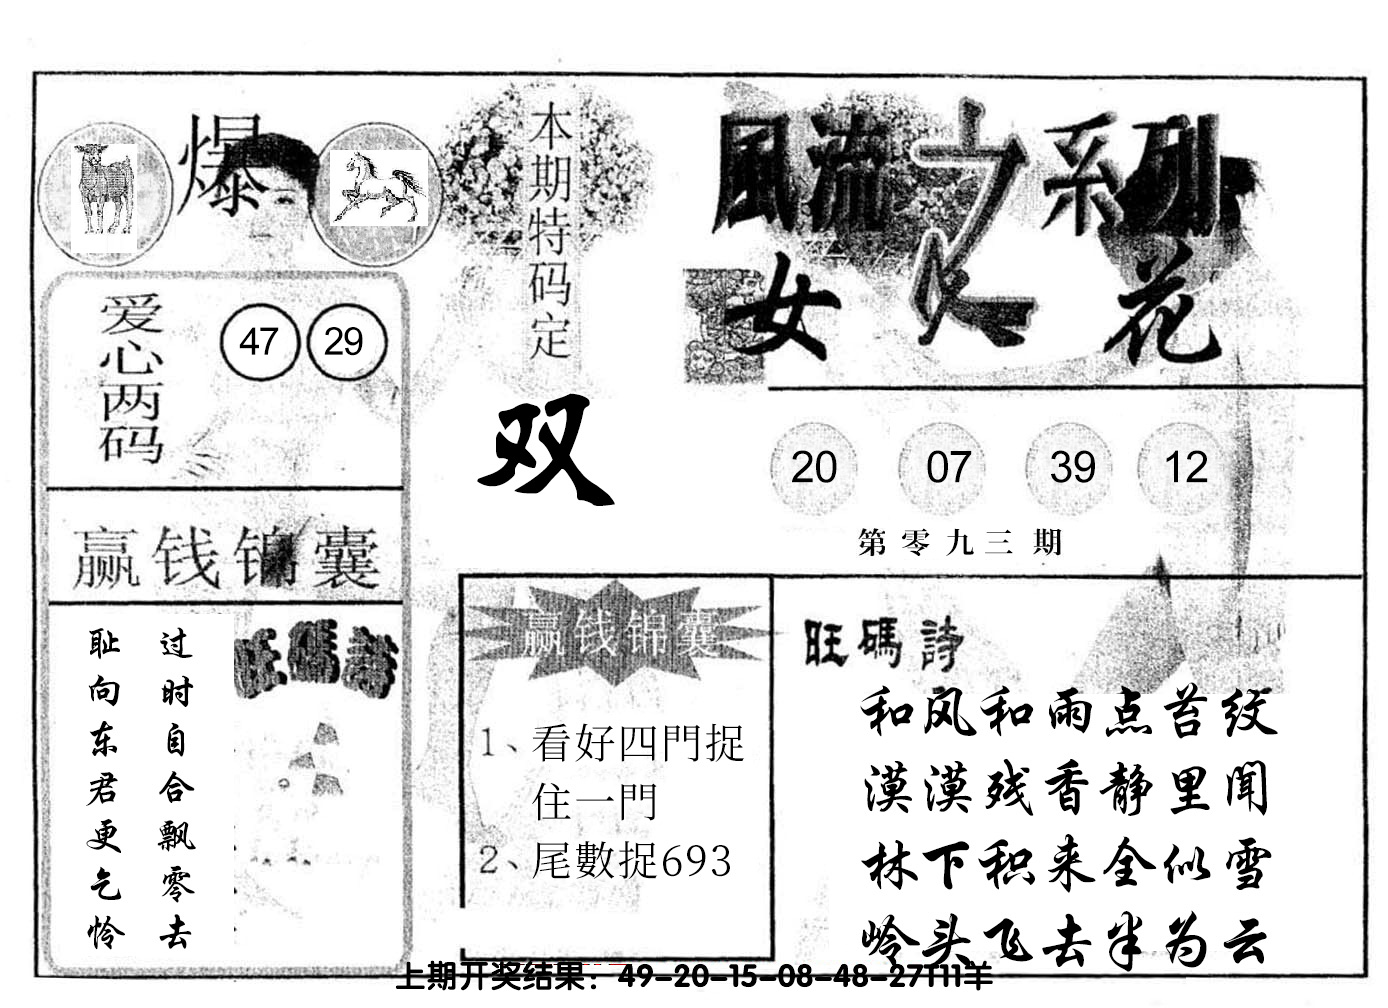 爆
本期特码定
双
風流之系列
女人花
爱心两码
47 29
20 07 39 12
第零九三期
赢钱锦囊
过时自合飘零去
耻向东君更乞怜
旺碼詩
赢钱锦囊
1、看好四門捉
住一門
2、尾數捉693
旺碼詩
和风和雨点苔纹
漠漠残香静里闻
林下积来全似雪
岭头飞去半为云
上期开奖结果：49-20-15-08-48-27T11羊